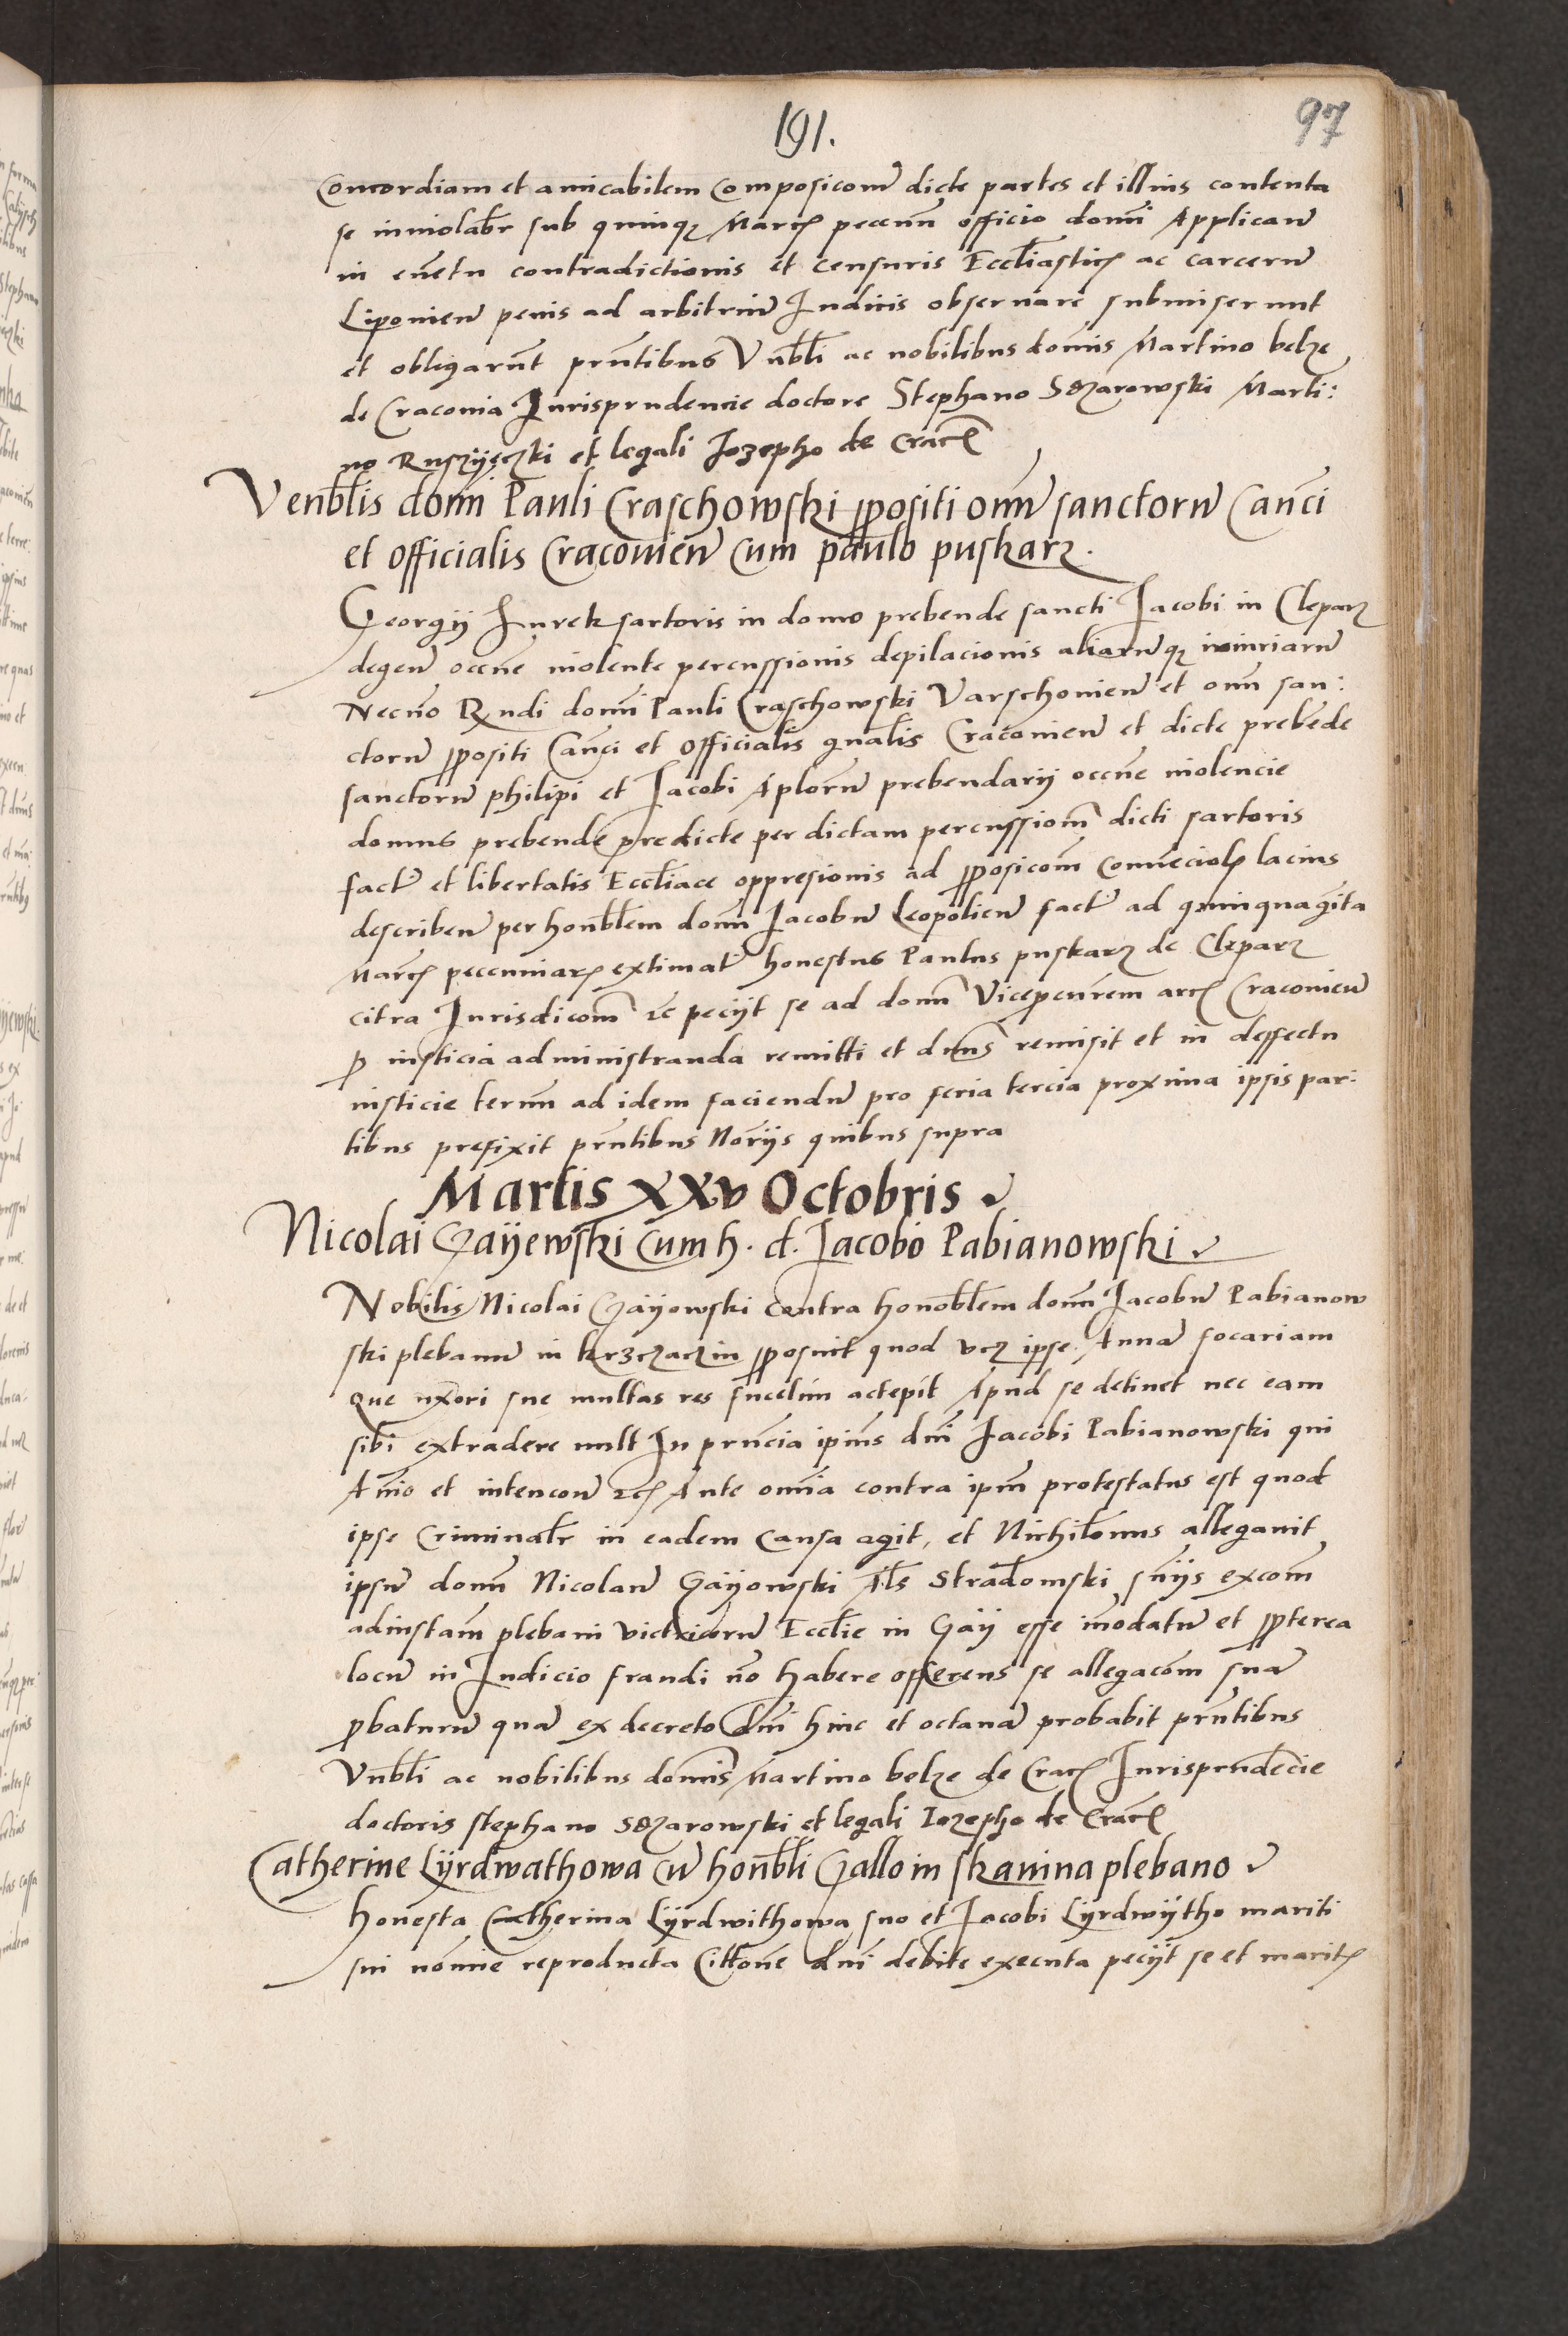 191.
97
Concordiam et amicabilem Composicom̄ dicte partes et illius contenta
se inviolabr̄ sub quinqȝ Marcȝ pecun̄ officio domi Applican̄
in eūetu contradictionis et censuris Eccl̄iasticȝ ac carcerū
Lipouien̄ penis ad arbitriū Iudicis obseruare submiserunt
et obligarūt prn̄tibus Vnbl̄i ac nobilibus domīs Martino belze
de Craconia Iurisprudencie doctore Stephano Marti:
no et legali Iozepho de Cracȝ
Venbl̄is domī Pauli Craschowski ppositi om̄ sanctorū Can̄ci
et officialis Cracouien̄ Cum paulo puskarz.
Georgij Iurek sartoris in domo prebende sancti Iacobi in Cleparz
degen̄ occn̄e violente percussionis depilacionis aliarūqȝ iniuriarū
Necno Rn̄di domī Pauli Craschowski Varschouien̄ et om̄ san:
ctorū ppositi Can̄ci et officialis gn̄alis Cracouien̄ et dicte prebēde
sanctorū philipi et Iacobi Aplorū prebendarij occn̄e violencie
domus prebende predicte per dictam percussiom̄ dicti sartoris
fact̄ et libertatis Eccl̄iace oppresionis ad pposicom̄ lacius
describen̄ per honbl̄em dom̄ Iacobū Leopolien̄ fact̄ ad quinquagīta
Marcȝ pecuniarȝ extimat̄ honestus Paulus puskarz de Cleparz
citra Iurisdicom̄ etc̄ pecijt se ad dom̄ Viceprcūrem arcȝ Cracouien̄
p iusticia administranda remitti et dn̄s remisit et in deffectu
iusticie term̄ ad idem faciendū pro feria tercia proxima ipsis par:
tibus prefixit prn̄tibus Norijs quibus supra
Martis XXV Octobris
Nicolai Gayewski Cum h. d. Iacobo Pabianowski
Nobilis Nicolai Gayowski Contra honobl̄em dom̄ Iacobū Pabianow
ski plebanū in pposuit quod vcȝ ipse Annā focariam
que uxori sue multas res furelim accepit Apud se detinet nec eam
sibi extradere vult In prn̄cia ipiūs dnī Iacobi Pabianowski qui
Aīo et intencon̄ etcȝ Ante omīa contra ipm̄ protestatus est quod
ipse Criminabr̄ in eadem Causa agit, et Nichilomīus allegauit
ipsū dom̄ Nicolaū Gayowski Al̄s Stradomski snījs excom̄
adinstam̄ plebani victricorū Eccl̄ie in Gay esse inodatū et ppterea
locū in Iudicio standi nō habere offerens se allegacom̄ suā
pbaturū quā ex decreto dnī hinc et octauā probabit prn̄tibus
Vnbl̄i ac nobilibus domīs Martino belze de Cracȝ Iurisprudēcie
doctoris stephano et legali Iozepho de Cracȝ
Catherine Lyrdwathowa cū honbl̄i Gallo in skauina plebano
honesta Catherina Lyrdwithowa suo et Iacobi Lyrdwytho mariti
sui nomīe reproducta Cittōne dnī debite executa pecijt se et maritȝ